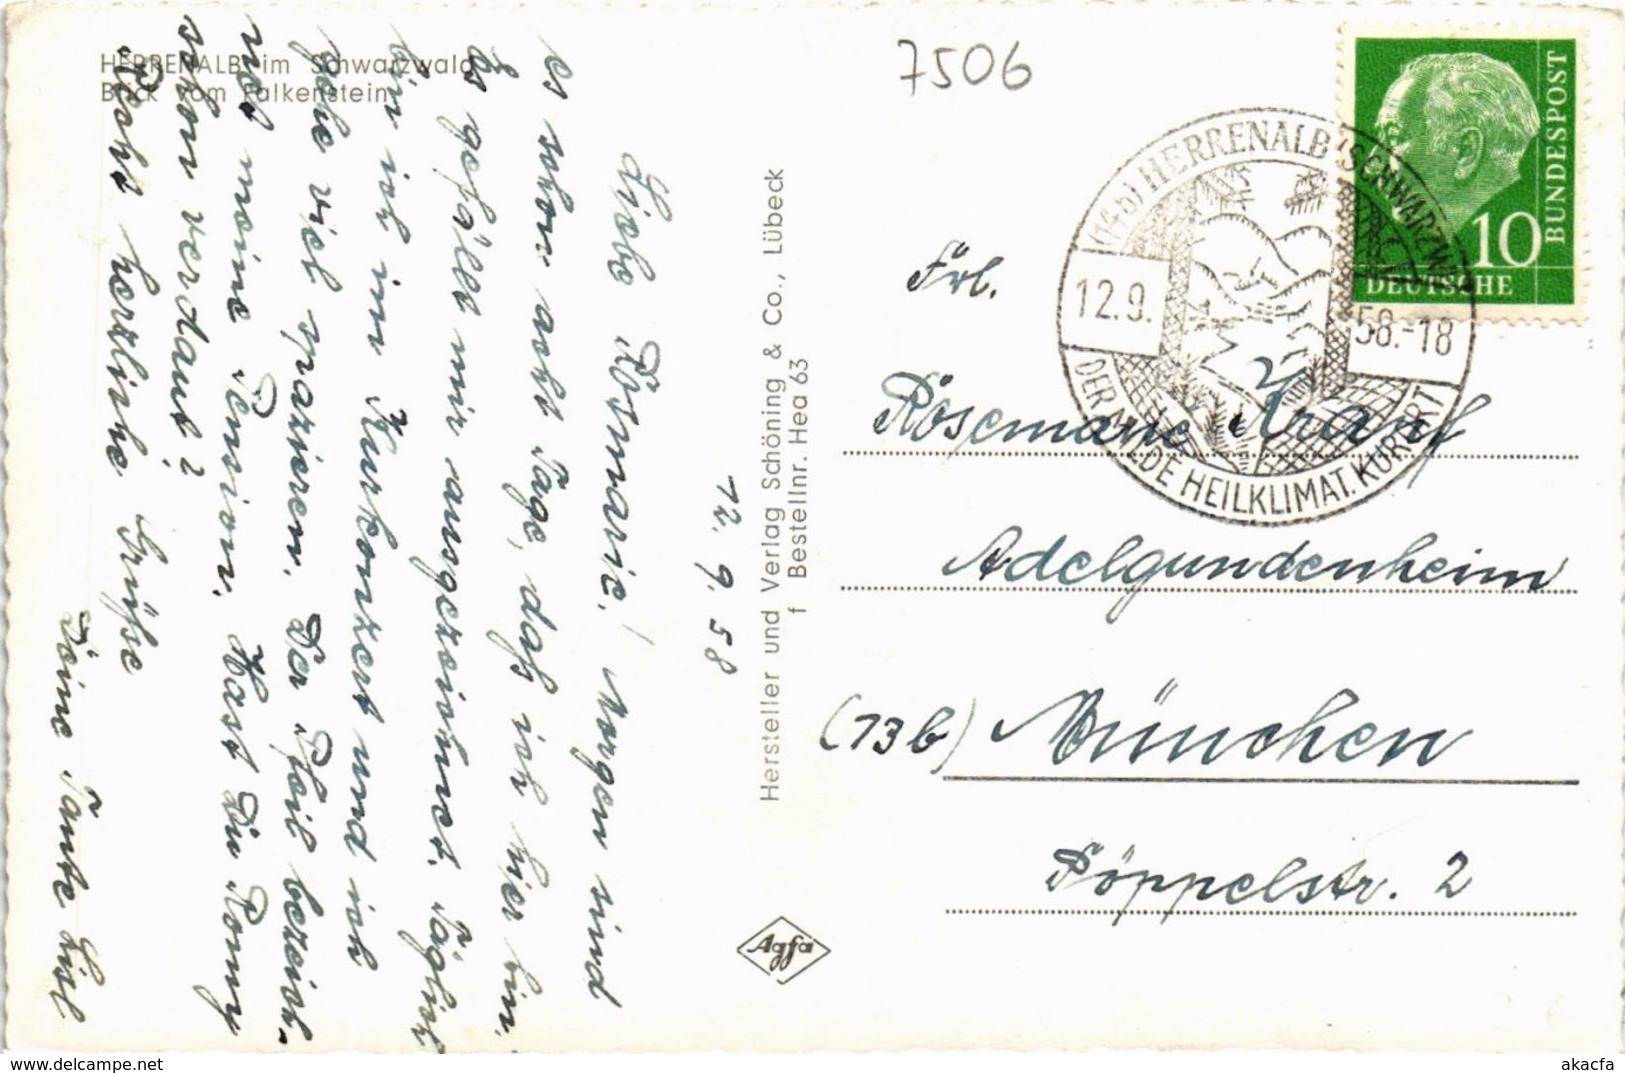 HERRENALB im Schwarzwald
Blick vom Falkenstein
7506
12. 9. 58
Liebe Rosmarie! Morgen sind
es schon acht Tage, daß ich hier bin.
Es gefällt mir ausgezeichnet. Täglich
bin ich im Kurkonzert und ich
gehe viel spazieren. Der Pfeil bezeich-
net meine Pension. Hast Du Romy
schon verdaut?
Recht herzliche Grüße
Deine Tante Lisl
Hersteller und Verlag Schöning & Co., Lübeck
f Bestellnr. Hea 63
Agfa
(14b) HERRENALB (SCHWARZW
12.9. 58.-18
DER MILDE HEILKLIMAT. KURORT
DEUTSCHE
BUNDESPOST
10
Frl.
Rosemarie
Adelgundenheim
(13b) München
Pöppelstr. 2
akacfa